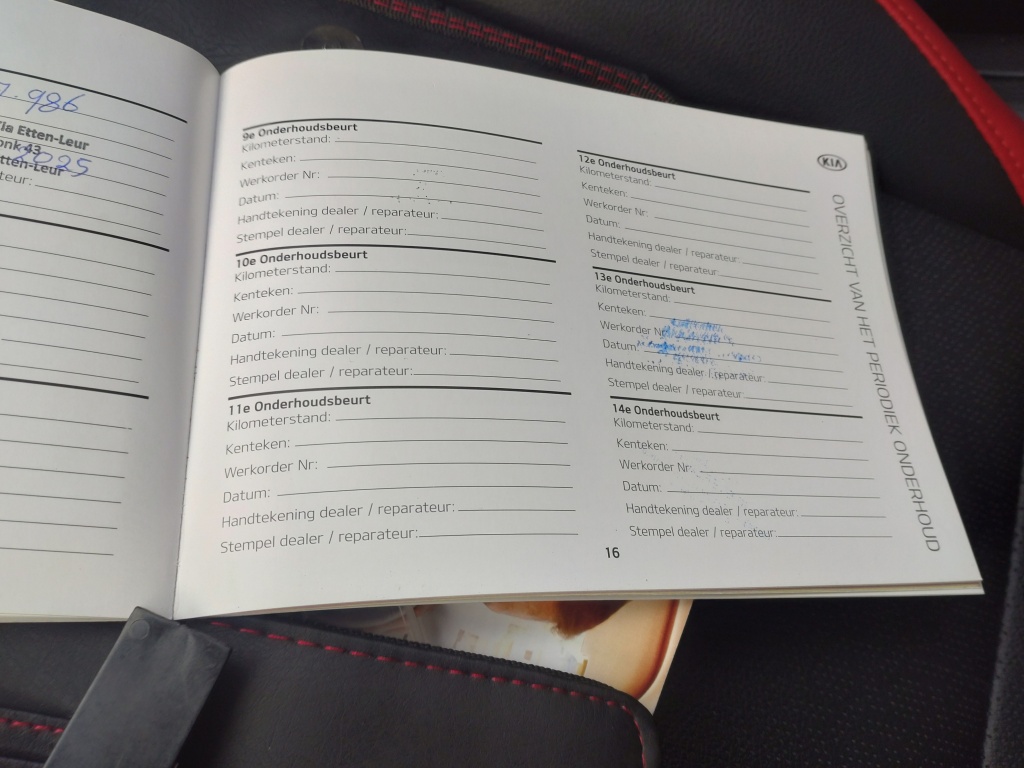 .986
Kia Etten-Leur
onk 43
2025
tten-Leur
teur:
9e Onderhoudsbeurt
Kilometerstand:
Kenteken:
Werkorder Nr:
Datum:
Handtekening dealer / reparateur:
Stempel dealer / reparateur:
10e Onderhoudsbeurt
Kilometerstand:
Kenteken:
Werkorder Nr:
Datum:
Handtekening dealer / reparateur:
Stempel dealer / reparateur:
11e Onderhoudsbeurt
Kilometerstand:
Kenteken:
Werkorder Nr:
Datum:
Handtekening dealer / reparateur:
Stempel dealer / reparateur:
12e Onderhoudsbeurt
Kilometerstand:
Kenteken:
Werkorder Nr:
Datum:
Handtekening dealer / reparateur:
Stempel dealer / reparateur:
13e Onderhoudsbeurt
Kilometerstand:
Kenteken:
Werkorder Nr
Datum:
Handtekening dealer / reparateur:
Stempel dealer / reparateur:
14e Onderhoudsbeurt
Kilometerstand:
Kenteken:
Werkorder Nr:
Datum:
Handtekening dealer / reparateur:
Stempel dealer / reparateur:
16
KIA
OVERZICHT VAN HET PERIODIEK ONDERHOUD